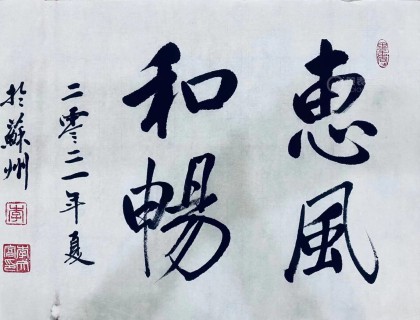 惠風
和暢
二零二一年夏
於蘇州
李